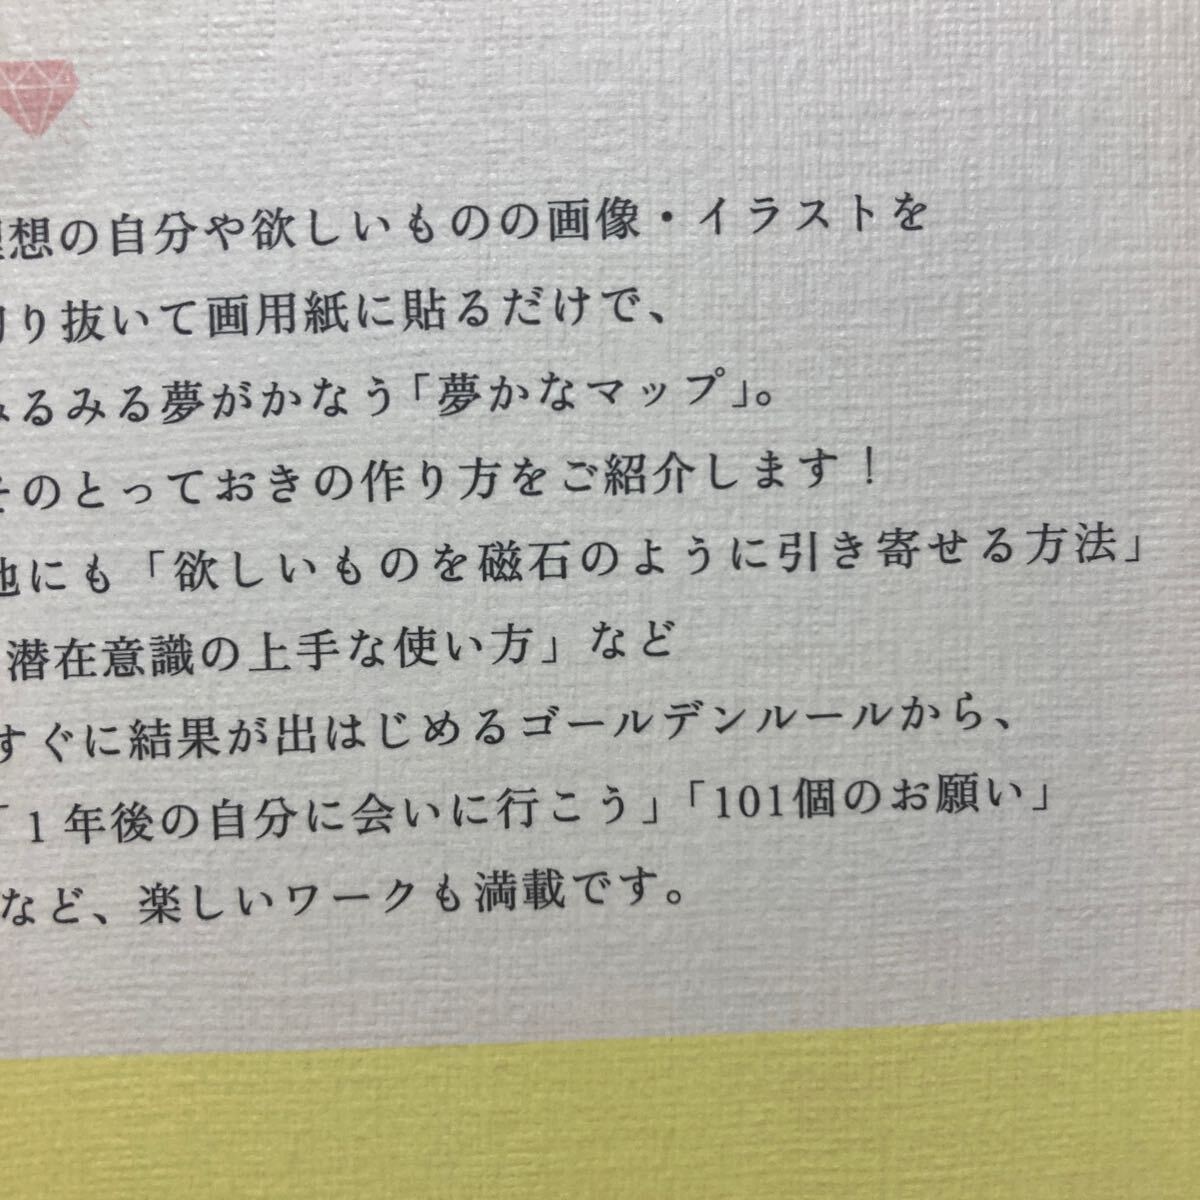 理想の自分や欲しいものの画像・イラストを
切り抜いて画用紙に貼るだけで、
みるみる夢がかなう「夢かなマップ」。
そのとっておきの作り方をご紹介します!
他にも「欲しいものを磁石のように引き寄せる方法」
潜在意識の上手な使い方」など
すぐに結果が出はじめるゴールデンルールから、
「1年後の自分に会いに行こう」「101個のお願い」
など、楽しいワークも満載です。